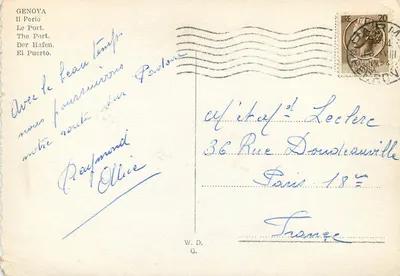 GENOVA
Il Porto
Le Port.
The Port.
Der Hafen.
El Puerto.
Avec le beau temps
nous poursuivons
notre route sur
Raymond
M. et Mme Leclerc
36 Rue Doudeauville
Paris 18
France
W. D.
G.
20